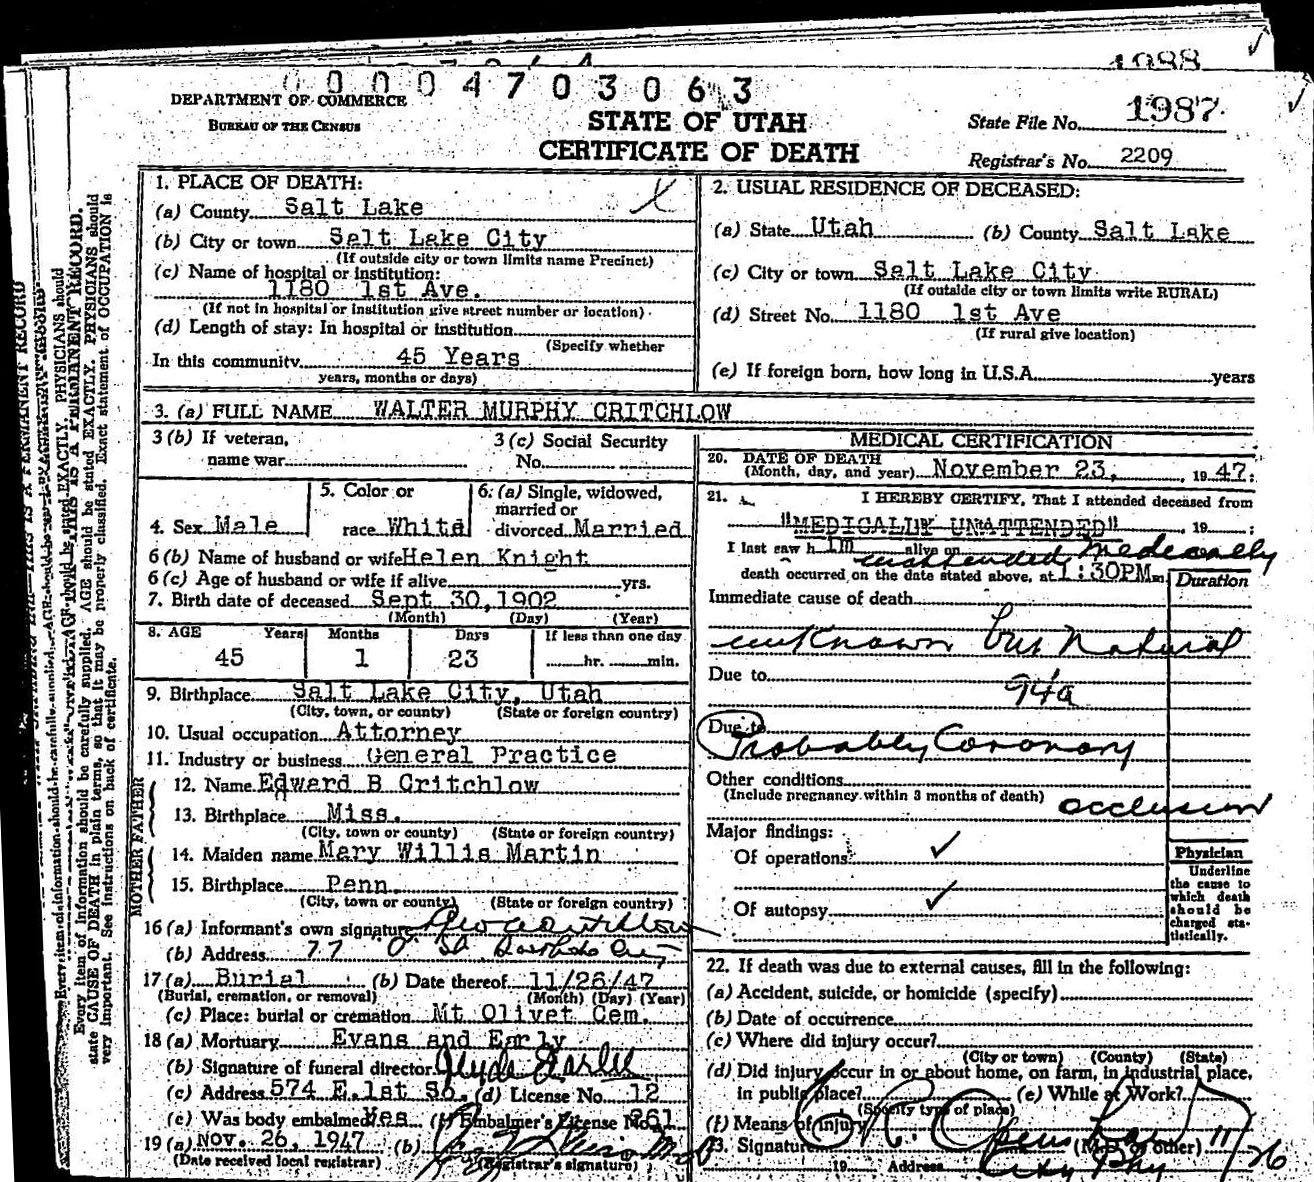 0000470306 3
1988
DEPARTMENT OF COMMERCE
BUREAU OF THE CENSUS
STATE OF UTAH
CERTIFICATE OF DEATH
State File No. 1987
Registrar's No. 2209
1. PLACE OF DEATH:
(a) County Salt Lake
(b) City or town Salt Lake City
(If outside city or town limits name Precinct)
(c) Name of hospital or institution:
1180 1st Ave.
(If not in hospital or institution give street number or location)
(d) Length of stay: In hospital or institution
(Specify whether
In this community 45 Years
years, months or days)
2. USUAL RESIDENCE OF DECEASED:
(a) State Utah (b) County Salt Lake
(c) City or town Salt Lake City
(If outside city or town limits write RURAL)
(d) Street No. 1180 1st Ave
(If rural give location)
(e) If foreign born, how long in U.S.A. years
3. (a) FULL NAME WALTER MURPHY CRITCHLOW
3 (b) If veteran,
name war
3 (c) Social Security
No.
4. Sex Male
5. Color or
race White
6. (a) Single, widowed,
married or
divorced Married
6 (b) Name of husband or wife Helen Knight
6 (c) Age of husband or wife if alive yrs.
7. Birth date of deceased Sept 30, 1902
(Month) (Day) (Year)
8. AGE Years Months Days If less than one day
45 1 23 hr. min.
9. Birthplace Salt Lake City, Utah
(City, town, or county) (State or foreign country)
10. Usual occupation Attorney
11. Industry or business General Practice
FATHER
12. Name Edward B Critchlow
13. Birthplace Miss.
(City, town or county) (State or foreign country)
MOTHER
14. Maiden name Mary Willis Martin
15. Birthplace Penn.
(City, town or county) (State or foreign country)
16 (a) Informant's own signature Geo a Critchlow
(b) Address 77 "O" St
17 (a) Burial (b) Date thereof 11/26/47
(Burial, cremation, or removal) (Month) (Day) (Year)
(c) Place: burial or cremation Mt Olivet Cem.
18 (a) Mortuary Evans and Early
(b) Signature of funeral director Clyde Earl
(c) Address 574 E. 1st So. (d) License No. 12
(e) Was body embalmed Yes (f) Embalmer's License No. 261
19 (a) Nov. 26, 1947 (b)
(Date received local registrar) (Registrar's signature)
MEDICAL CERTIFICATION
20. DATE OF DEATH
(Month, day, and year) November 23, 1947:
21. I HEREBY CERTIFY, That I attended deceased from
"MEDICALLY UNATTENDED" , 19 ;
I last saw h im alive on unattended Medically
death occurred on the date stated above, at 1:30PM m. Duration
Immediate cause of death
unknown but Natural
Due to 94a
Due to
Probably Coronary
Other conditions
(Include pregnancy within 3 months of death) occlusion
Major findings:
Of operations
Of autopsy
Physician
Underline
the cause to
which death
should be
charged sta-
tistically.
22. If death was due to external causes, fill in the following:
(a) Accident, suicide, or homicide (specify)
(b) Date of occurrence
(c) Where did injury occur?
(City or town) (County) (State)
(d) Did injury occur in or about home, on farm, in industrial place,
in public place? (e) While at Work?
(Specify type of place)
(f) Means of injury
23. Signature (M.D. or other) 11/26
19 Address City Phy
Every item of information should be carefully supplied. AGE should be stated EXACTLY. PHYSICIANS should
state CAUSE OF DEATH in plain terms, so that it may be properly classified. Exact statement of OCCUPATION is
very important. See instructions on back of certificate.